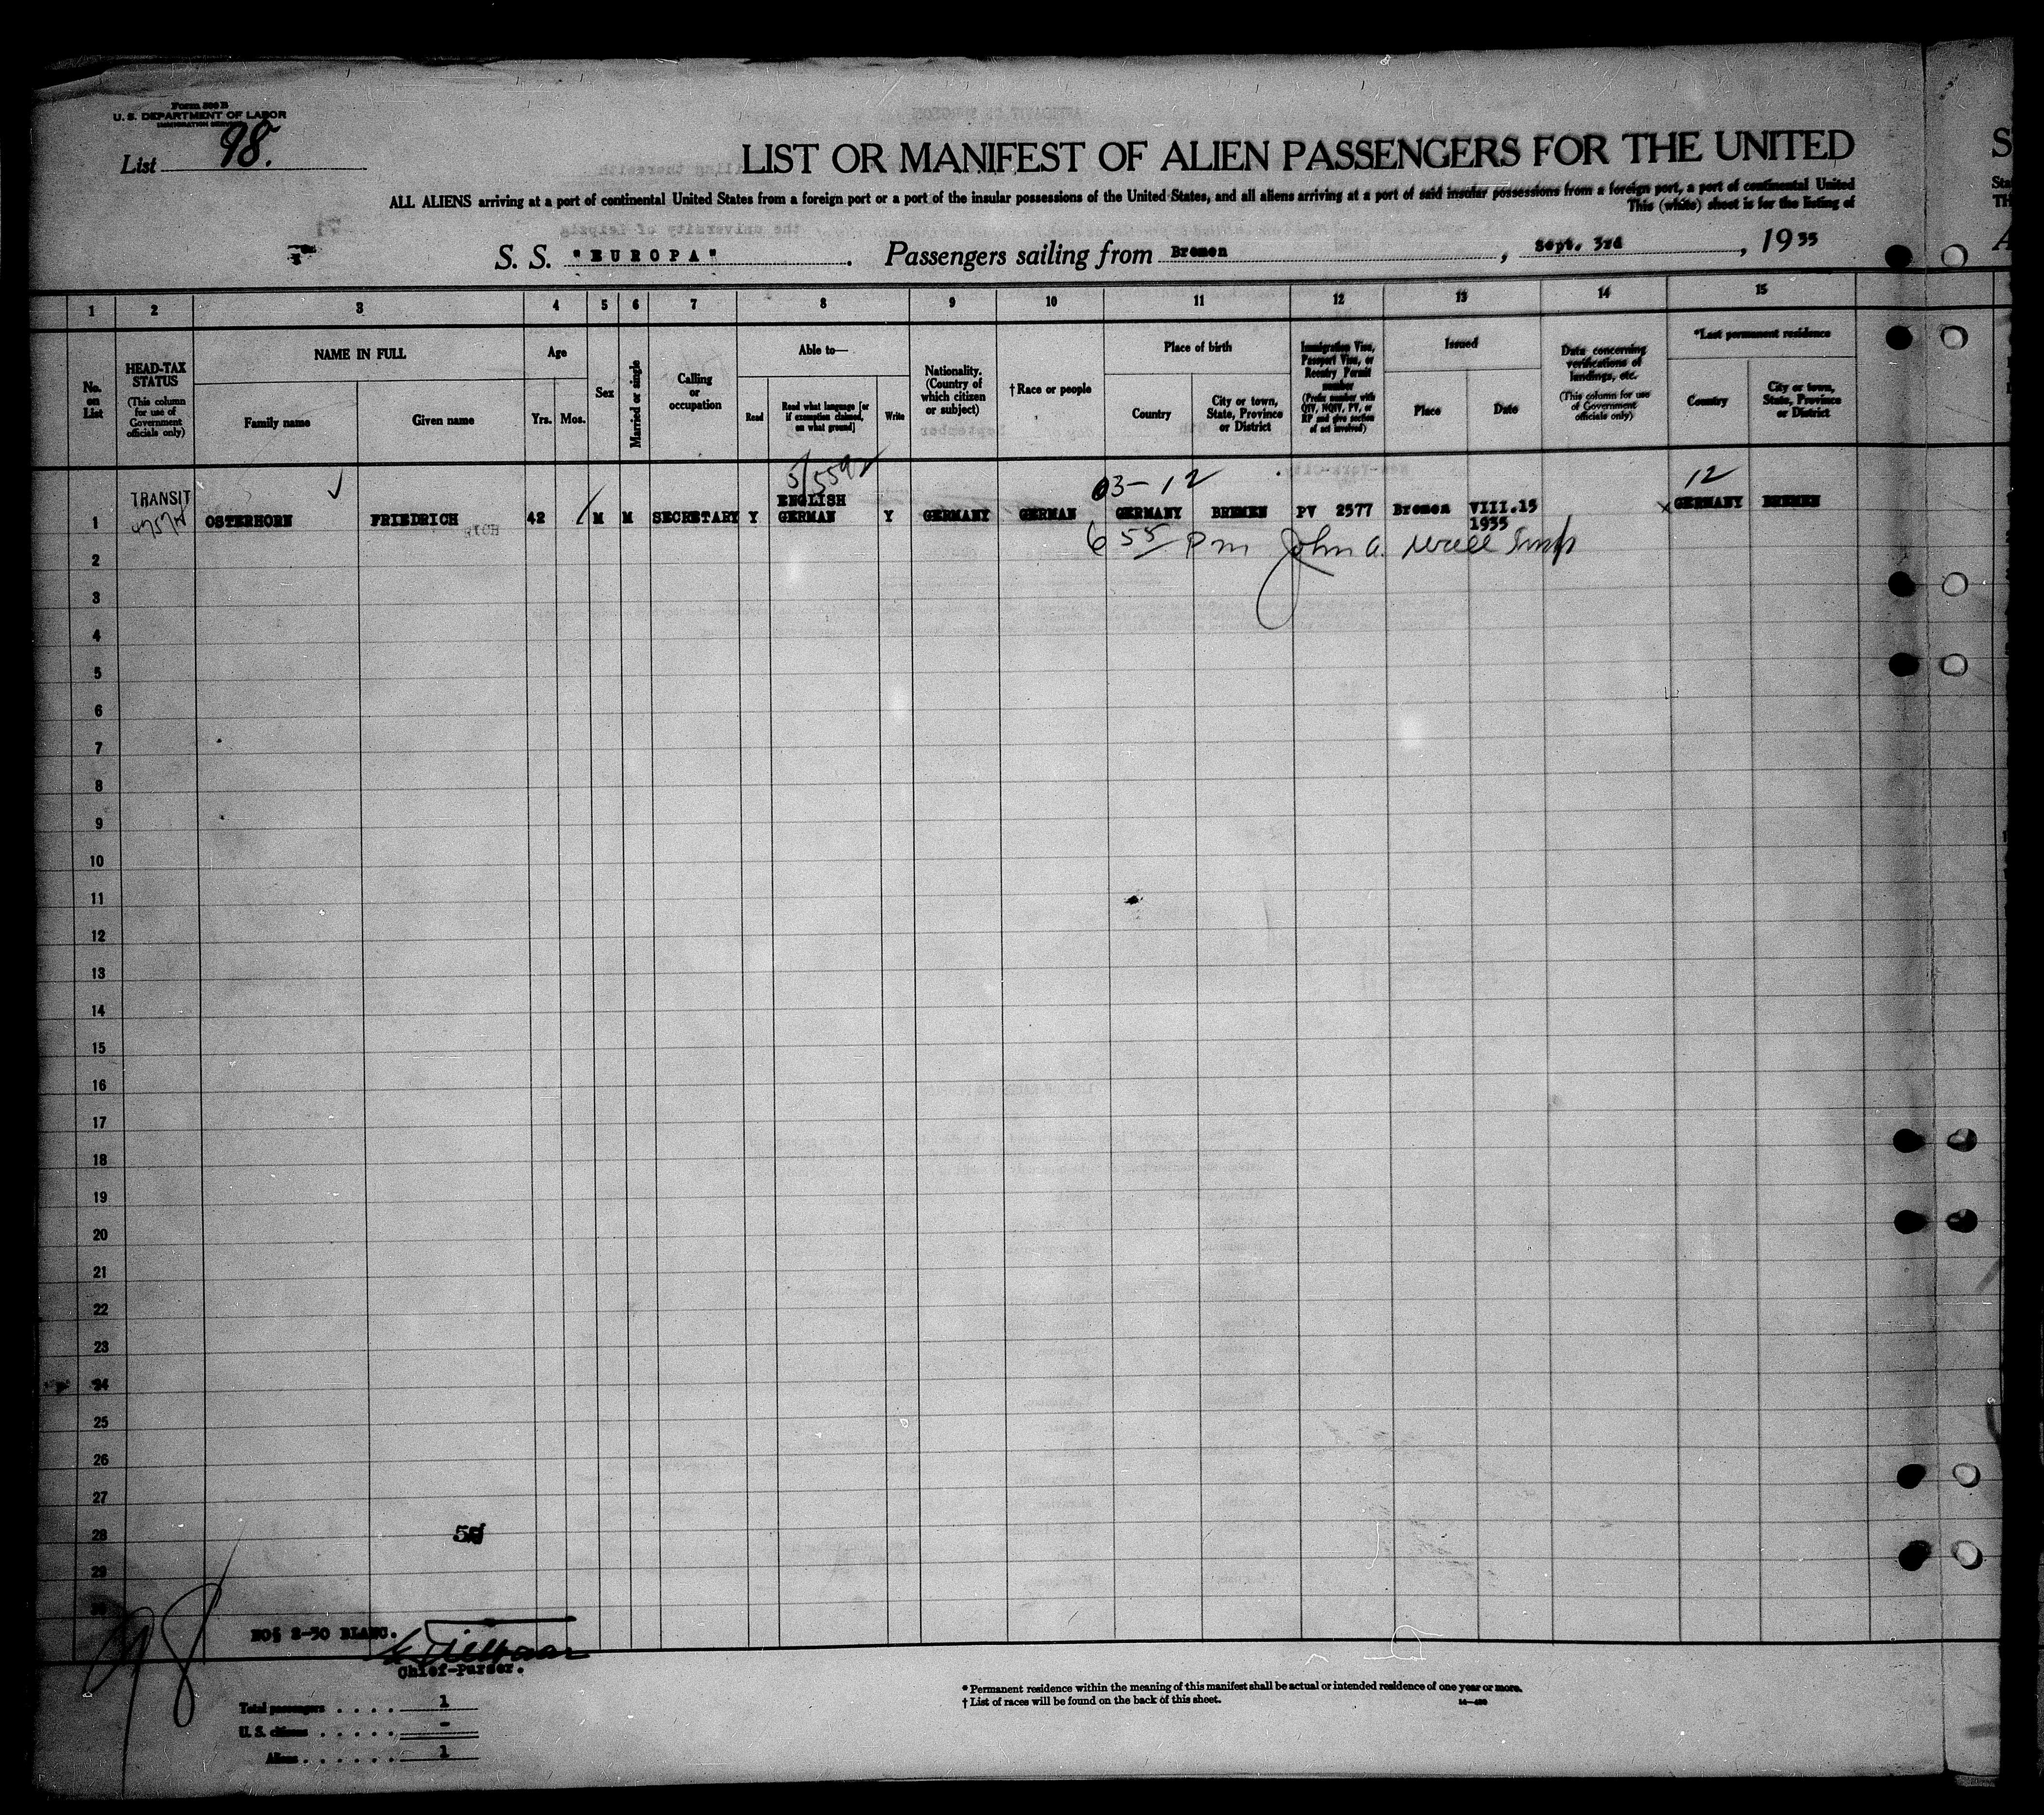 Form 500 B
U. S. DEPARTMENT OF LABOR
IMMIGRATION SERVICE
List 98.
LIST OR MANIFEST OF ALIEN PASSENGERS FOR THE UNITED
ALL ALIENS arriving at a port of continental United States from a foreign port or a port of the insular possessions of the United States, and all aliens arriving at a port of said insular possessions from a foreign port, a port of continental United
This (white) sheet is for the listing of
S. S. "EUROPA". Passengers sailing from Bremen, Sept. 3rd, 1935
1 2 3 4 5 6 7 8 9 10 11 12 13 14 15
No. on List
HEAD-TAX STATUS (This column for use of Government officials only)
NAME IN FULL
Family name
Given name
Age
Yrs. Mos.
Sex
Married or single
Calling or occupation
Able to—
Read
Read what language [or if exemption claimed, on what ground]
Write
Nationality. (Country of which citizen or subject)
†Race or people
Place of birth
Country
City or town, State, Province or District
Immigration Visa, Passport Visa, or Reentry Permit number (Prefix number with QIV, NQIV, PV, or RP and give section of act involved)
Issued
Place
Date
Data concerning verifications of landings, etc. (This column for use of Government officials only)
*Last permanent residence
Country
City or town, State, Province or District
5/559 03-12 12
TRANSIT ENGLISH
1 OSTERHORN FRIEDRICH 42 M M SECRETARY Y GERMAN Y GERMANY GERMAN GERMANY BREMEN PV 2577 Bremen VIII.15 1935 x GERMANY BREMEN
6 55 Pm John A. Wall Insp
2
3
4
5
6
7
8
9
10
11
12
13
14
15
16
17
18
19
20
21
22
23
24
25
26
27
28
29
30
98
NO§ 2-30 BLANC.
Chief-Purser.
Total passengers . . . . 1
U. S. citizens . . . . . -
Aliens . . . . . . 1
* Permanent residence within the meaning of this manifest shall be actual or intended residence of one year or more.
† List of races will be found on the back of this sheet.